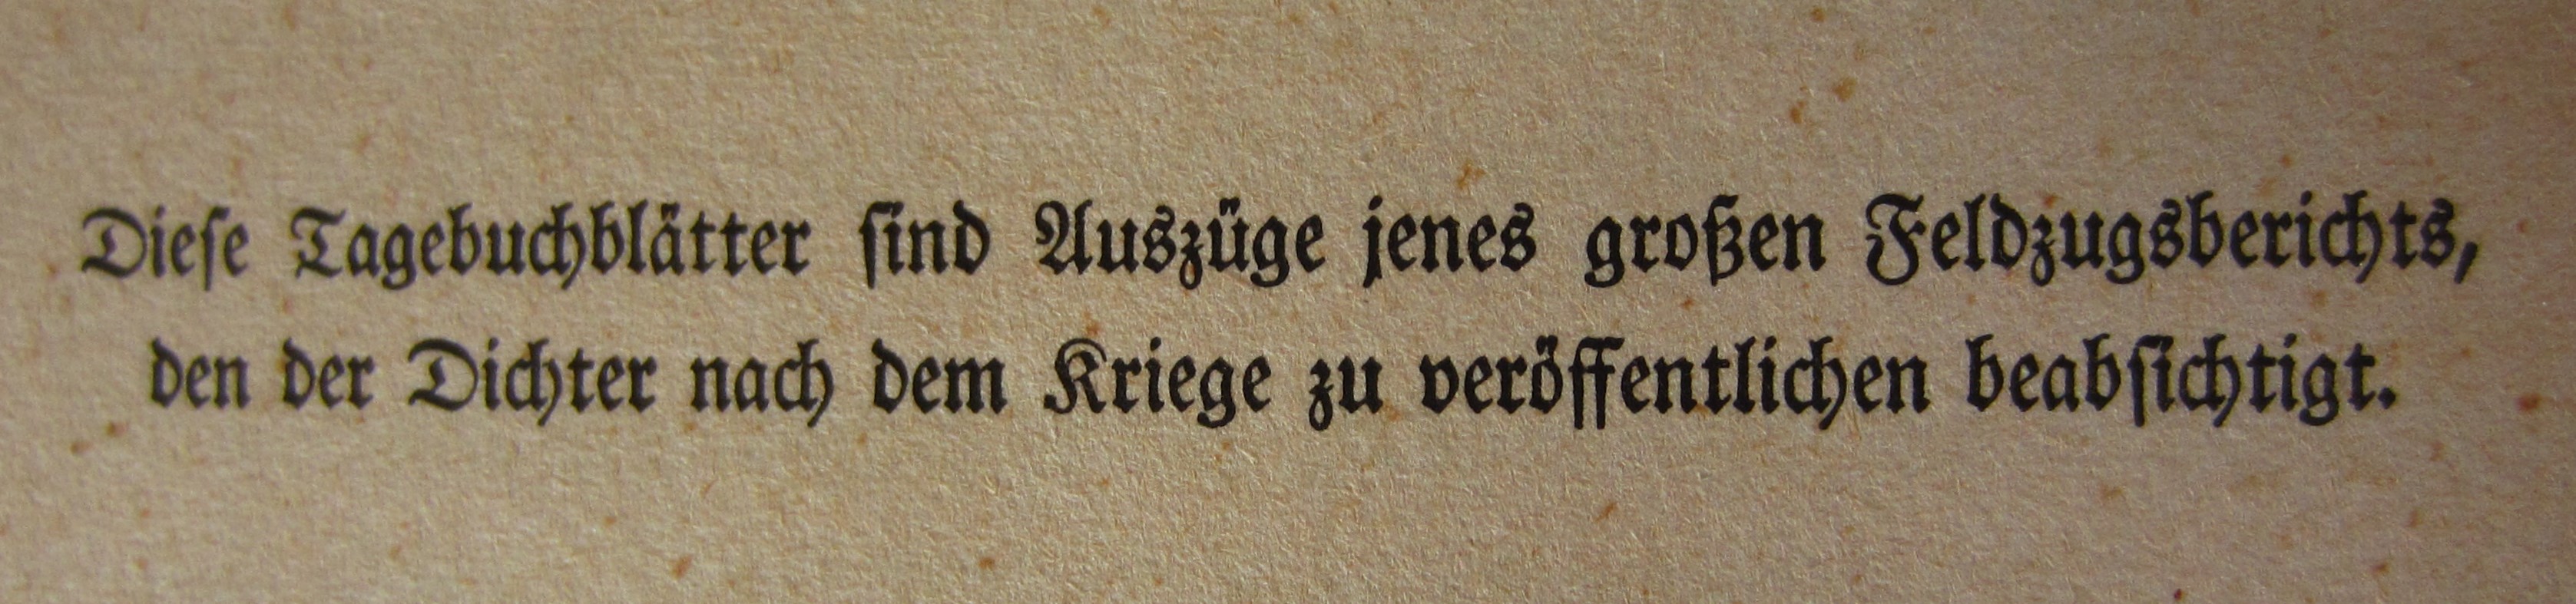 Dieſe Tagebuchblätter ſind Auszüge jenes großen Feldzugsberichts,
den der Dichter nach dem Kriege zu veröffentlichen beabſichtigt.